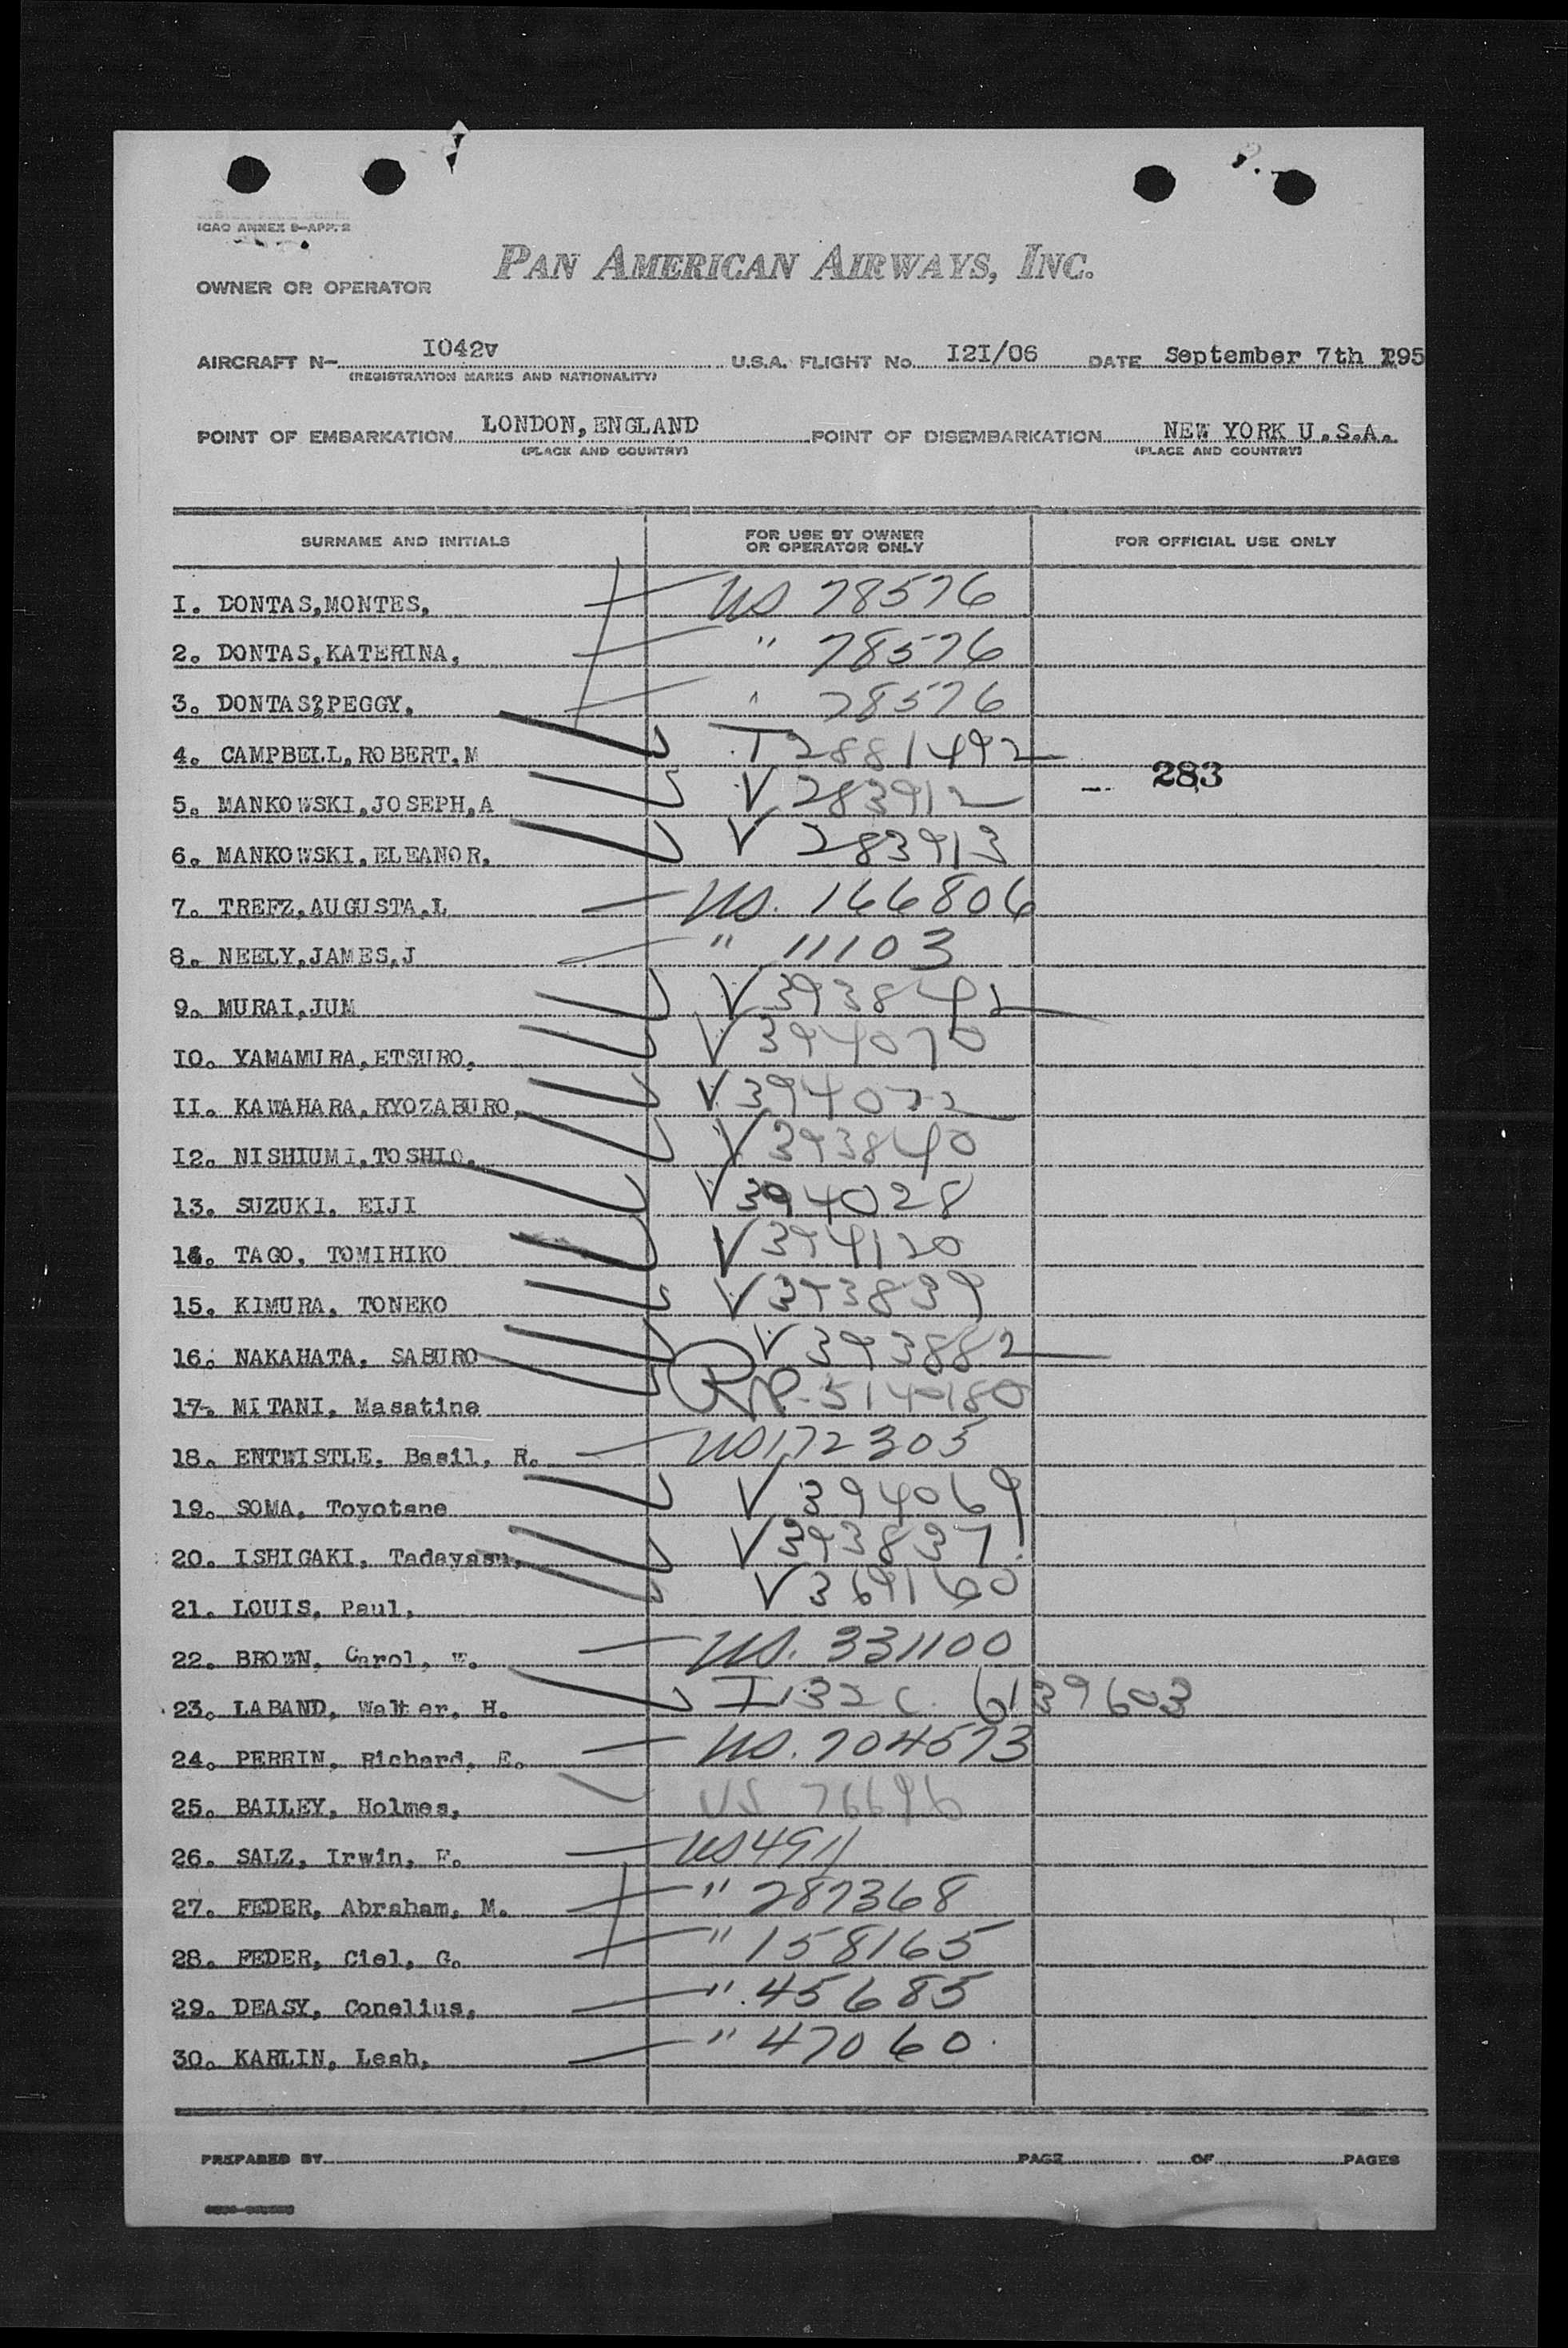 ICAO ANNEX 9-APP. 2
PAN AMERICAN AIRWAYS, INC.
OWNER OR OPERATOR
AIRCRAFT N- I042v U.S.A. FLIGHT No. I2I/06 DATE September 7th 195
(REGISTRATION MARKS AND NATIONALITY)
POINT OF EMBARKATION LONDON, ENGLAND POINT OF DISEMBARKATION NEW YORK U.S.A.
(PLACE AND COUNTRY) (PLACE AND COUNTRY)
SURNAME AND INITIALS FOR USE BY OWNER OR OPERATOR ONLY FOR OFFICIAL USE ONLY
I. DONTAS,MONTES, US 78576
2. DONTAS,KATERINA, " 78576
3. DONTAS?PEGGY, " 78576
4. CAMPBELL,ROBERT,M T2881492
283
5. MANKOWSKI,JOSEPH,A V 283912
6. MANKOWSKI,ELEANOR, V 283913
7. TREFZ,AUGUSTA,L US. 166806
8. NEELY,JAMES,J " 11103
9. MURAI,JUM V393842
I0. YAMAMURA,ETSURO, V394070
II. KAWAHARA,RYOZABURO, V394072
I2. NISHIUMI,TOSHIO, V393840
13. SUZUKI, EIJI V394028
14. TAGO, TOMIHIKO V394120
15. KIMURA, TONEKO V393839
16. NAKAHATA, SABURO V393882
17. MITANI, Masatine 5140180
18. ENTWISTLE, Basil, R. US172305
19. SOMA, Toyotane V 394069
20. ISHIGAKI, Tadayasu, V393837
21. LOUIS, Paul, V369160
22. BROWN, Carol, W. US. 331100
23. LABAND, Walter, H. I132C 6139603
24. PERRIN, Richard, E. US. 704573
25. BAILEY, Holmes, US 76696
26. SALZ, Irwin, F. US4911
27. FEDER, Abraham, M. " 287368
28. FEDER, Ciel, G. " 158165
29. DEASY, Conelius, " 45685
30. KARLIN, Leah, " 47060
PREPARED BY PAGE OF PAGES